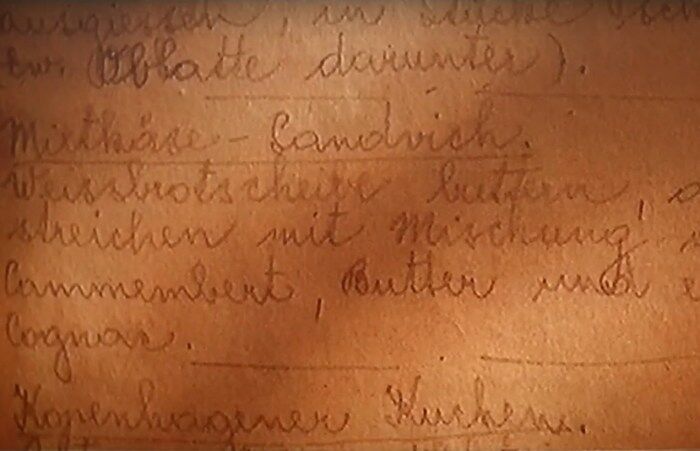 ausgiessen, in Stücke
Oblatte darunter).
Mixtkäse-Sandvich.
Weissbrotscheibe buttern,
streichen mit Mischung
Cammembert, Butter und
Cognac.
Kopenhagener Kuchen.